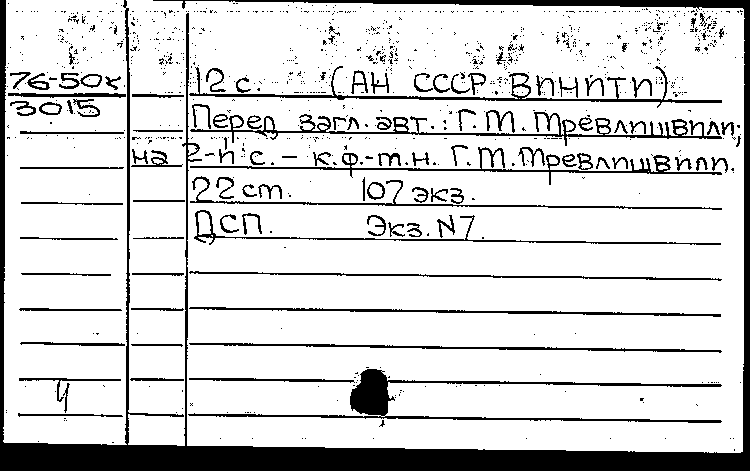 76-50к 12 с. (АН СССР. ВИНИТИ).
3015 Перед загл. авт.: Г. М. Тревлишвили;
на 2-й с. – к.ф.-м.н. Г. М. Тревлишвили.
22 ст. 107 экз.
ДСП. Экз. N7.
4